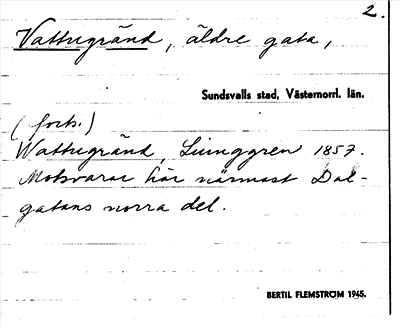 2.
Vattugränd, äldre gata,
Sundsvalls stad, Västernorrl. län.
(forts.)
Wattugränd, Ljunggren 1857.
Motsvarar här närmast Dal-
gatans norra del.
BERTIL FLEMSTRÖM 1945.